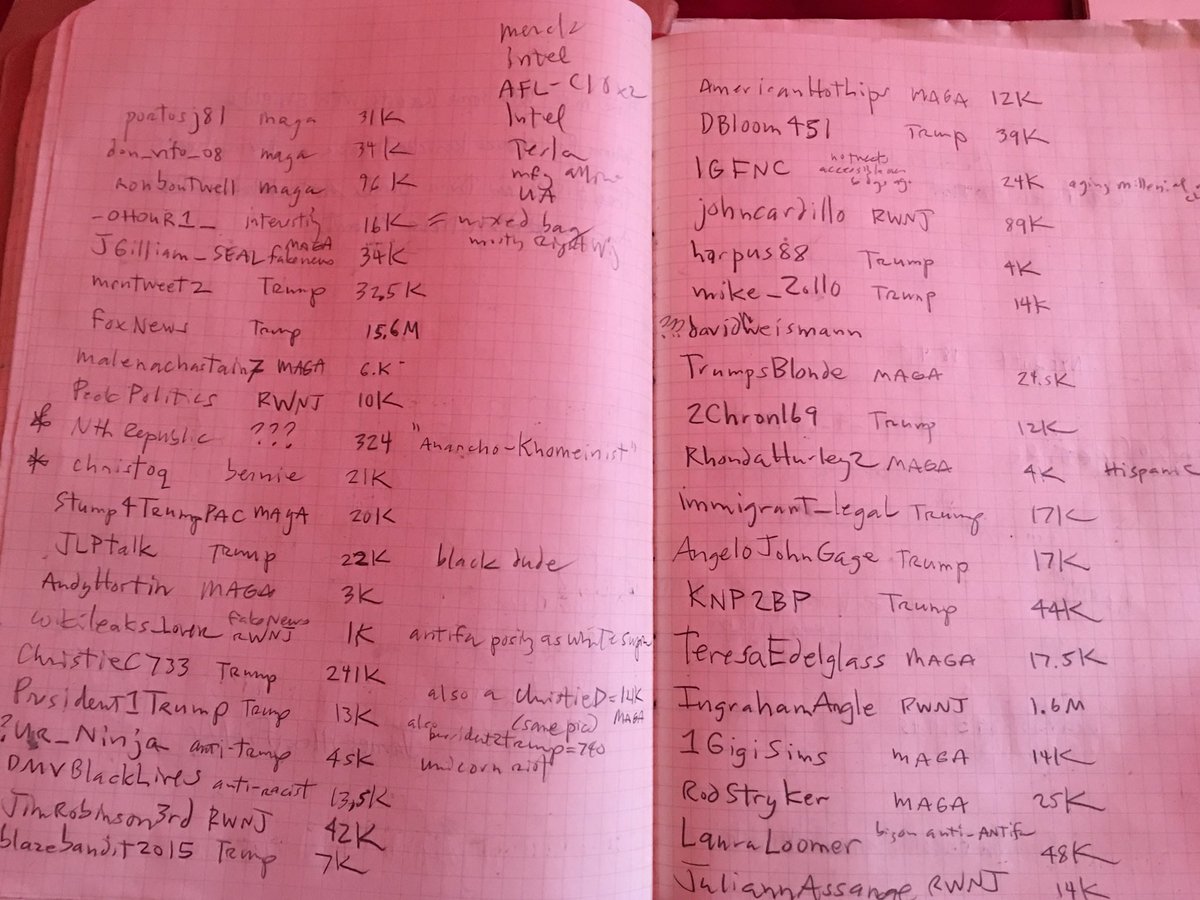 merck
Intel
AFL-CIO x2
Intel
Tesla
mfg
UA
portosj81 maga 31K
don_vito_08 maga 34K
RonBoutwell maga 96K
_0HOUR1_ interesting 16K = mixed bag
mostly Right
JGilliam_SEAL MAGA fakenews 34K
mrntweet2 Trump 32,5K
FoxNews Trump 15.6M
malenachastain7 MAGA 6.K
PeokPolitics RWNJ 10K
* Nth Republic ??? 324 "Anarcho-Khomeinist"
* christoq bernie 21K
Stump4TrumpPAC MAgA 20K
JLPtalk Trump 22K black dude
AndyHortin MAGA 3K
wikileaks_Lover fakeNews RWNJ 1K antifa posing as white
ChristieC733 Trump 241K
also a ChristieD = 12K
(same pic) MAGA
President1Trump Trump 13K
also president2trump = 740
? UR_Ninja anti-trump 45K unicorn riot
DMVBlackLives anti-racist 13,5K
JimRobinson3rd RWNJ 42K
blazebandit2015 Trump 7K
AmericanHotLips MAGA 12K
DBloom451 Trump 39K
IGFNC 24K aging millenial
johncardillo RWNJ 89K
harpus88 Trump 4K
mike_Zollo Trump 14K
??? davidWeismann
TrumpsBlonde MAGA 24.5K
2Chron169 Trump 12K
RhondaHurley2 MAGA 4K Hispanic
immigrant_legal Trump 17K
AngeloJohnGage Trump 17K
KNP2BP Trump 44K
TeresaEdelglass MAGA 17.5K
IngrahamAngle RWNJ 1.6M
1GigiSims MAGA 14K
RodStryker MAGA 25K
LauraLoomer anti-ANTifa 48K
JuliannAssange RWNJ 14K